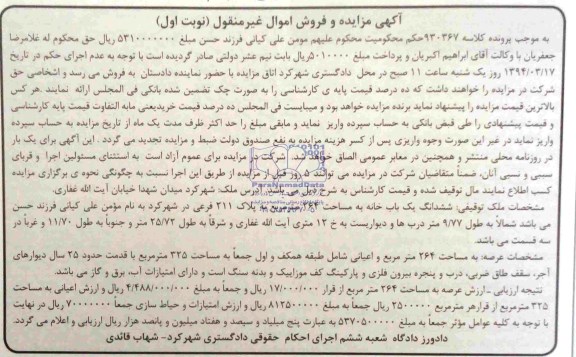 آگهی مزایده و فروش اموال غیرمنقول (نوبت اول)
به موجب پرونده کلاسه ۹۳۰۳۶۷حکم محکومیت محکوم علیهم مومن علی کیانی فرزند حسن مبلغ ۵۳۱۰۰۰۰۰۰۰ ریال حق محکوم له غلامرضا
جعفریان با وکالت آقای ابراهیم اکبریان و پرداخت مبلغ ۵۰۱۰۰۰۰ریال بابت نیم عشر دولتی صادر گردیده است با توجه به عدم اجرای حکم در تاریخ
۱۳۹۴/۰۳/۱۷ روز یک شنبه ساعت ۱۱ صبح در محل دادگستری شهرکرد اتاق مزایده با حضور نماینده دادستان به فروش می رسد و اشخاصی حق
شرکت در مزایده را خواهند داشت که ده درصد قیمت پایه ی کارشناسی را به صورت چک تضمین شده بانکی فی المجلس ارائه نمایند .هر کس
بالاترین قیمت مزایده را پیشنهاد نماید برنده مزایده خواهد بود و میبایست فی المجلس ده درصد قیمت خریدیعنی مابه التفاوت قیمت پایه کارشناسی
و قیمت پیشنهادی را طی قبض بانکی به حساب سپرده واریز نماید و مابقی مبلغ را حد اکثر ظرف مدت یک ماه از تاریخ مزایده به حساب سپرده
واریز نماید در غیر این صورت وجوه واریزی پس از کسر هزینه مزایده به نفع صندوق دولت ضبط و مزایده تجدید می گردد . این آگهی برای یک بار
در روزنامه محلی منتشر و همچنین در معابر عمومی الصاق خواهد شد. شرکت در مزایده برای عموم آزاد است به استثنای مسئولین اجرا و قربای
سببی و نسبی آنان، ضمناً متقاضیان شرکت در مزایده می توانند ۵ روز قبل از مزایده از طریق این اجرا نسبت به چگونگی نحوه ی برگزاری مزایده
کسب اطلاع نمایند مال توقیف شده و قیمت کارشناس به شرح ذیل می باشد. آدرس ملک: شهرکرد میدان شهدا خیابان آیت الله غفاری.
مشخصات ملک توقیفی: ششدانگ یک باب خانه به مساحت مترمربع به پلاک ۲۱۱ فرعی در شهرکرد به نام مؤمن علی کیانی فرزند حسن
می باشد شمالاً به طول ۹/۷۷ متر درب ها و دیواریست به خ ۱۲ متری آیت الله غفاری و شرقاً به طول ۲۵/۷۲ متر و جنوباً به طول ۱۱/۷۰ و غرباً در
سه قسمت می باشد.
مشخصات عرصه: به مساحت ۲۶۴ متر مربع و اعیانی شامل طبقه همکف و اول جمعاً به مساحت ۳۲۵ مترمربع با قدمت حدود ۲۵ سال دیوارهای
آجر، سقف طاق ضربی، درب و پنجره بیرون فلزی و پارکینگ کف موزاییک و بدنه سنگ است و دارای امتیازات آب، برق و گاز می باشد.
نتیجه ارزیابی ـ ارزش عرصه به مساحت ۲۶۴ متر مربع از قرار ۱۷/۰۰۰/۰۰۰ ریال و جمعاً به مبلغ ۴/۴۸۸/۰۰۰/۰۰۰ ریال و ارزش اعیانی به مساحت
۳۲۵ مترمربع از قرارهر مترمربع ۲۵۰۰۰۰۰ ریال جمعاً به مبلغ ۸۱۲۵۰۰۰۰۰ ریال و ارزش امتیازات و حیاط سازی جمعاً ۷۰۰۰۰۰۰۰ ریال در نهایت
با توجه به کلیه عوامل مؤثر جمعاً به مبلغ ۵۳۷۰۵۰۰۰۰۰ به عبارت پنج میلیاد و سیصد و هفتاد میلیون و پانصد هزار ریال ارزیابی و اعلام می گردد.
دادورز دادگاه شعبه ششم اجرای احکام حقوقی دادگستری شهرکرد- شهاب قائدی
ParsNamadData